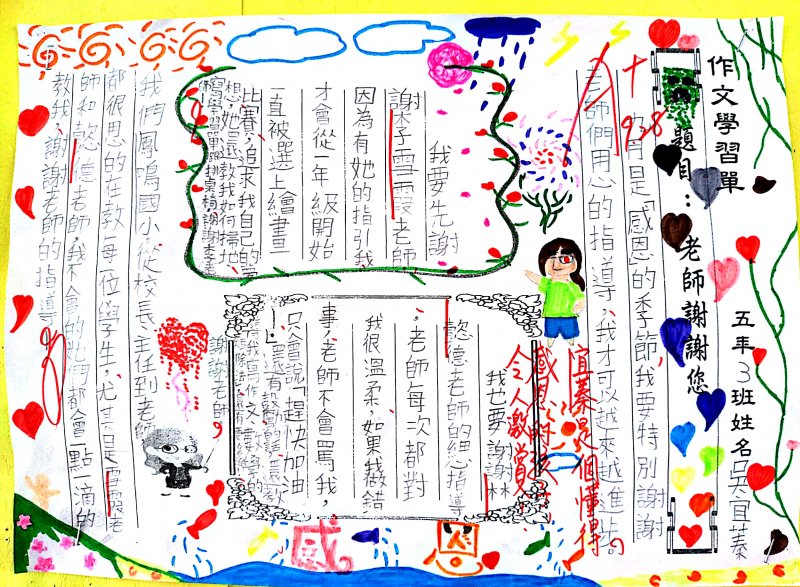 作文學習單
題目：老師謝謝您
五年3班姓名吳宜蓁
月是「感恩的季節」,我要特別謝謝
老師們用心的指導、我才可以越來越進步。
宜蓁是個懂得
感恩的孩子
令人激賞
我要先謝
謝李雪霞老師
因為有她的指引我
才會從一年級開始
一直被選上繪畫
比賽,追求我自己的夢
想,她還教我如何掃地、
寫學習單跟排桌椅謝謝李老師
我也要謝謝林
懿德老師的細心指導
,老師每次都對
我很溫柔,如果我做錯
事,老師不會罵我,
只會說「趕快加油
」還有鼓勵的話,還教
我寫作文
謝謝老師。
我們鳳鳴國小從校長、主任到老師
都很思的在教每一位學生,尤其是雪霞老
師和懿德老師,我不會的她們都會一點一滴的
教我,謝謝老師的指導。
感
恩